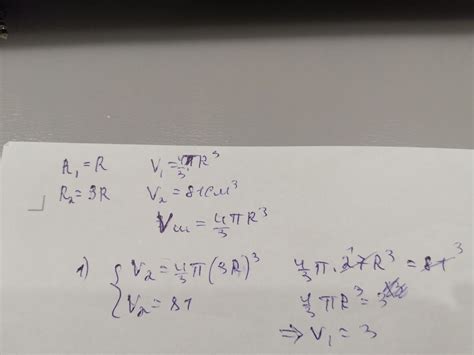 R₁=R V₁=4/3πR³
R₂=3R V₂=81см³
Vш=4/3πR³
1) { V₂=4/3π(3R)³ 4/3π·27R³=81
V₂=81 4/3πR³=3
⇒V₁=3